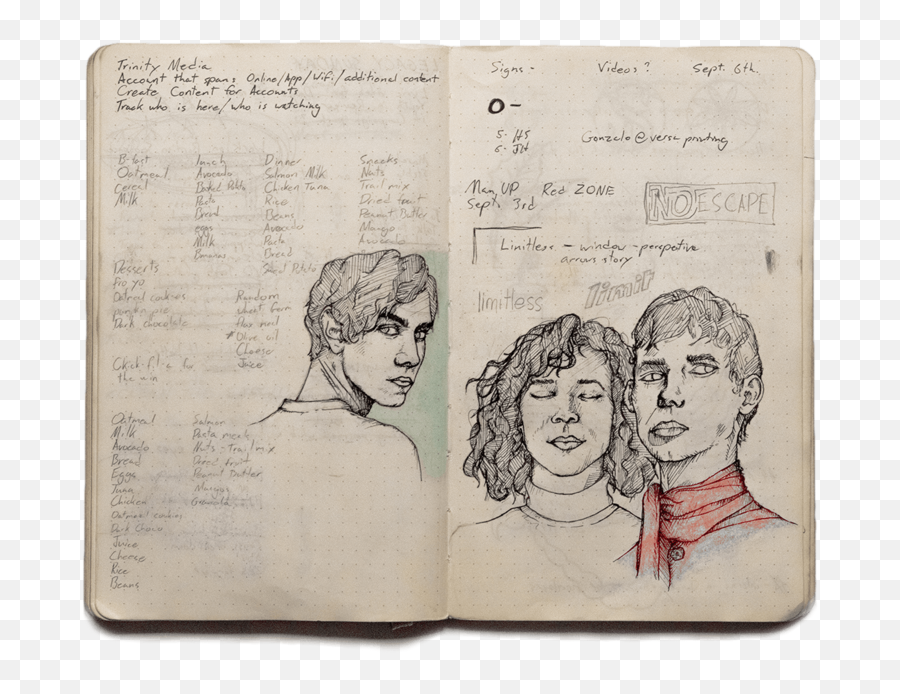 Trinity Media
Account that spans Online/App/Wifi/additional content
Create Content for Accounts
Track who is here/who is watching
B-fast
Oatmeal
Cereal
Milk
Lunch
Avocado
Baked Potato
Pasta
Bread
eggs
Milk
Bananas
Dinner
Salmon Milk
Chicken Tuna
Rice
Beans
Avocado
Pasta
Bread
Sweet Potato
Snacks
Nuts
Trail mix
Dried fruit
Peanut Butter
Mango
Avocado
Desserts
Fro yo
Oatmeal cookies
pumpkin pie
Dark chocolate
Random
what from
this meal
* Olive oil
Cheese
Juice
Chick-fil-a for
the win
Oatmeal
Milk
Avocado
Bread
Eggs
Tuna
Chicken
Oatmeal cookies
Dark Choco
Juice
Cheese
Rice
Beans
Salmon
Pasta
Nuts - Trail mix
Dried fruit
Peanut Butter
Mangos
Signs - Videos? Sept. 6th.
O-
5. HS
6. JH
Gonzalo@versa printing
Man UP Red ZONE
Sept. 3rd
NO ESCAPE
Limitless - window - perspetive
arrows story
limitless
limit